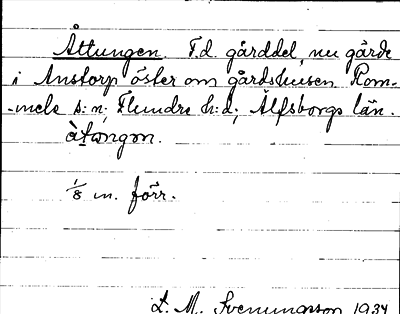 Åttungen. F.d. gårddel, nu gärde
i Anstorp öster om gårdshusen. Rom-
-mele s:n; Flundre h:d; Älfsborgs län.
àtoŋgɷn.
1/8 m. förr.
L. M. Svenungsson 1934